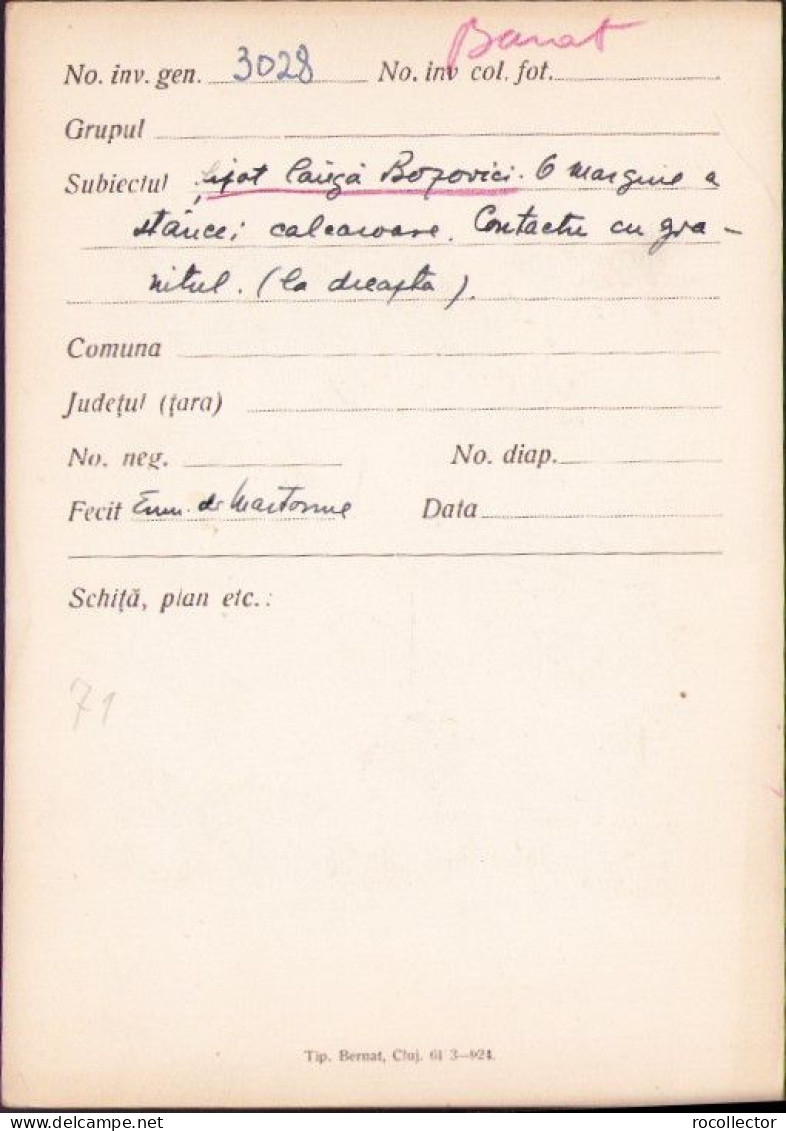 Banat
No. inv. gen. 3028 No. inv col. fot.
Grupul
Subiectul lângă Bozovici. O margine a
stâncei calcaroase. Contactu cu gra-
nitul. (la dreapta).
Comuna
Județul (țara)
No. neg. No. diap.
Fecit Emm. de Martonne Data
Schiță, plan etc.:
71
Tip. Bernat, Cluj. 61 3—924.
delcampe.net
rocollector